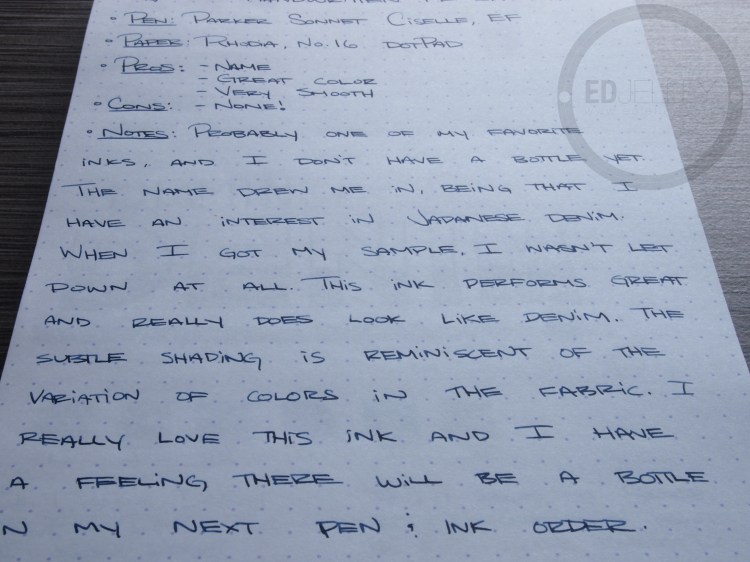 • PEN: PARKER SONNET CISELLE, EF
• PAPER: RHODIA, NO. 16 DOTPAD
• PROS: - NAME
- GREAT COLOR
- VERY SMOOTH
• CONS: - NONE!
• NOTES: PROBABLY ONE OF MY FAVORITE
INKS, AND I DON'T HAVE A BOTTLE YET.
THE NAME DREW ME IN, BEING THAT I
HAVE AN INTEREST IN JAPANESE DENIM.
WHEN I GOT MY SAMPLE, I WASN'T LET
DOWN AT ALL. THIS INK PERFORMS GREAT
AND REALLY DOES LOOK LIKE DENIM. THE
SUBTLE SHADING IS REMINISCENT OF THE
VARIATION OF COLORS IN THE FABRIC. I
REALLY LOVE THIS INK AND I HAVE
A FEELING THERE WILL BE A BOTTLE
N MY NEXT PEN & INK ORDER.
ED